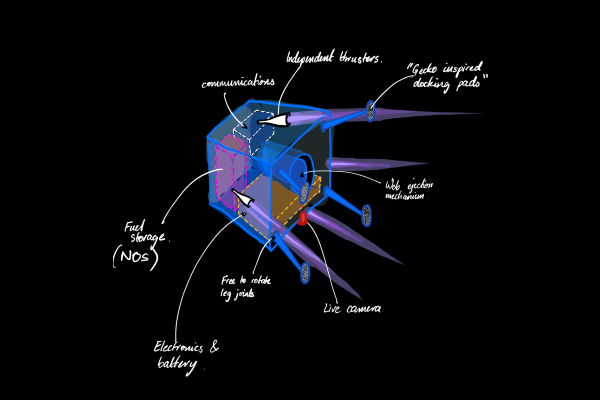 Independent thrusters.
"Gecko inspired
docking pads"
communications
Web ejection
mechanism.
Fuel
storage.
(NOS)
Free to rotate
leg joints
Live camera
Electronics &
battery.